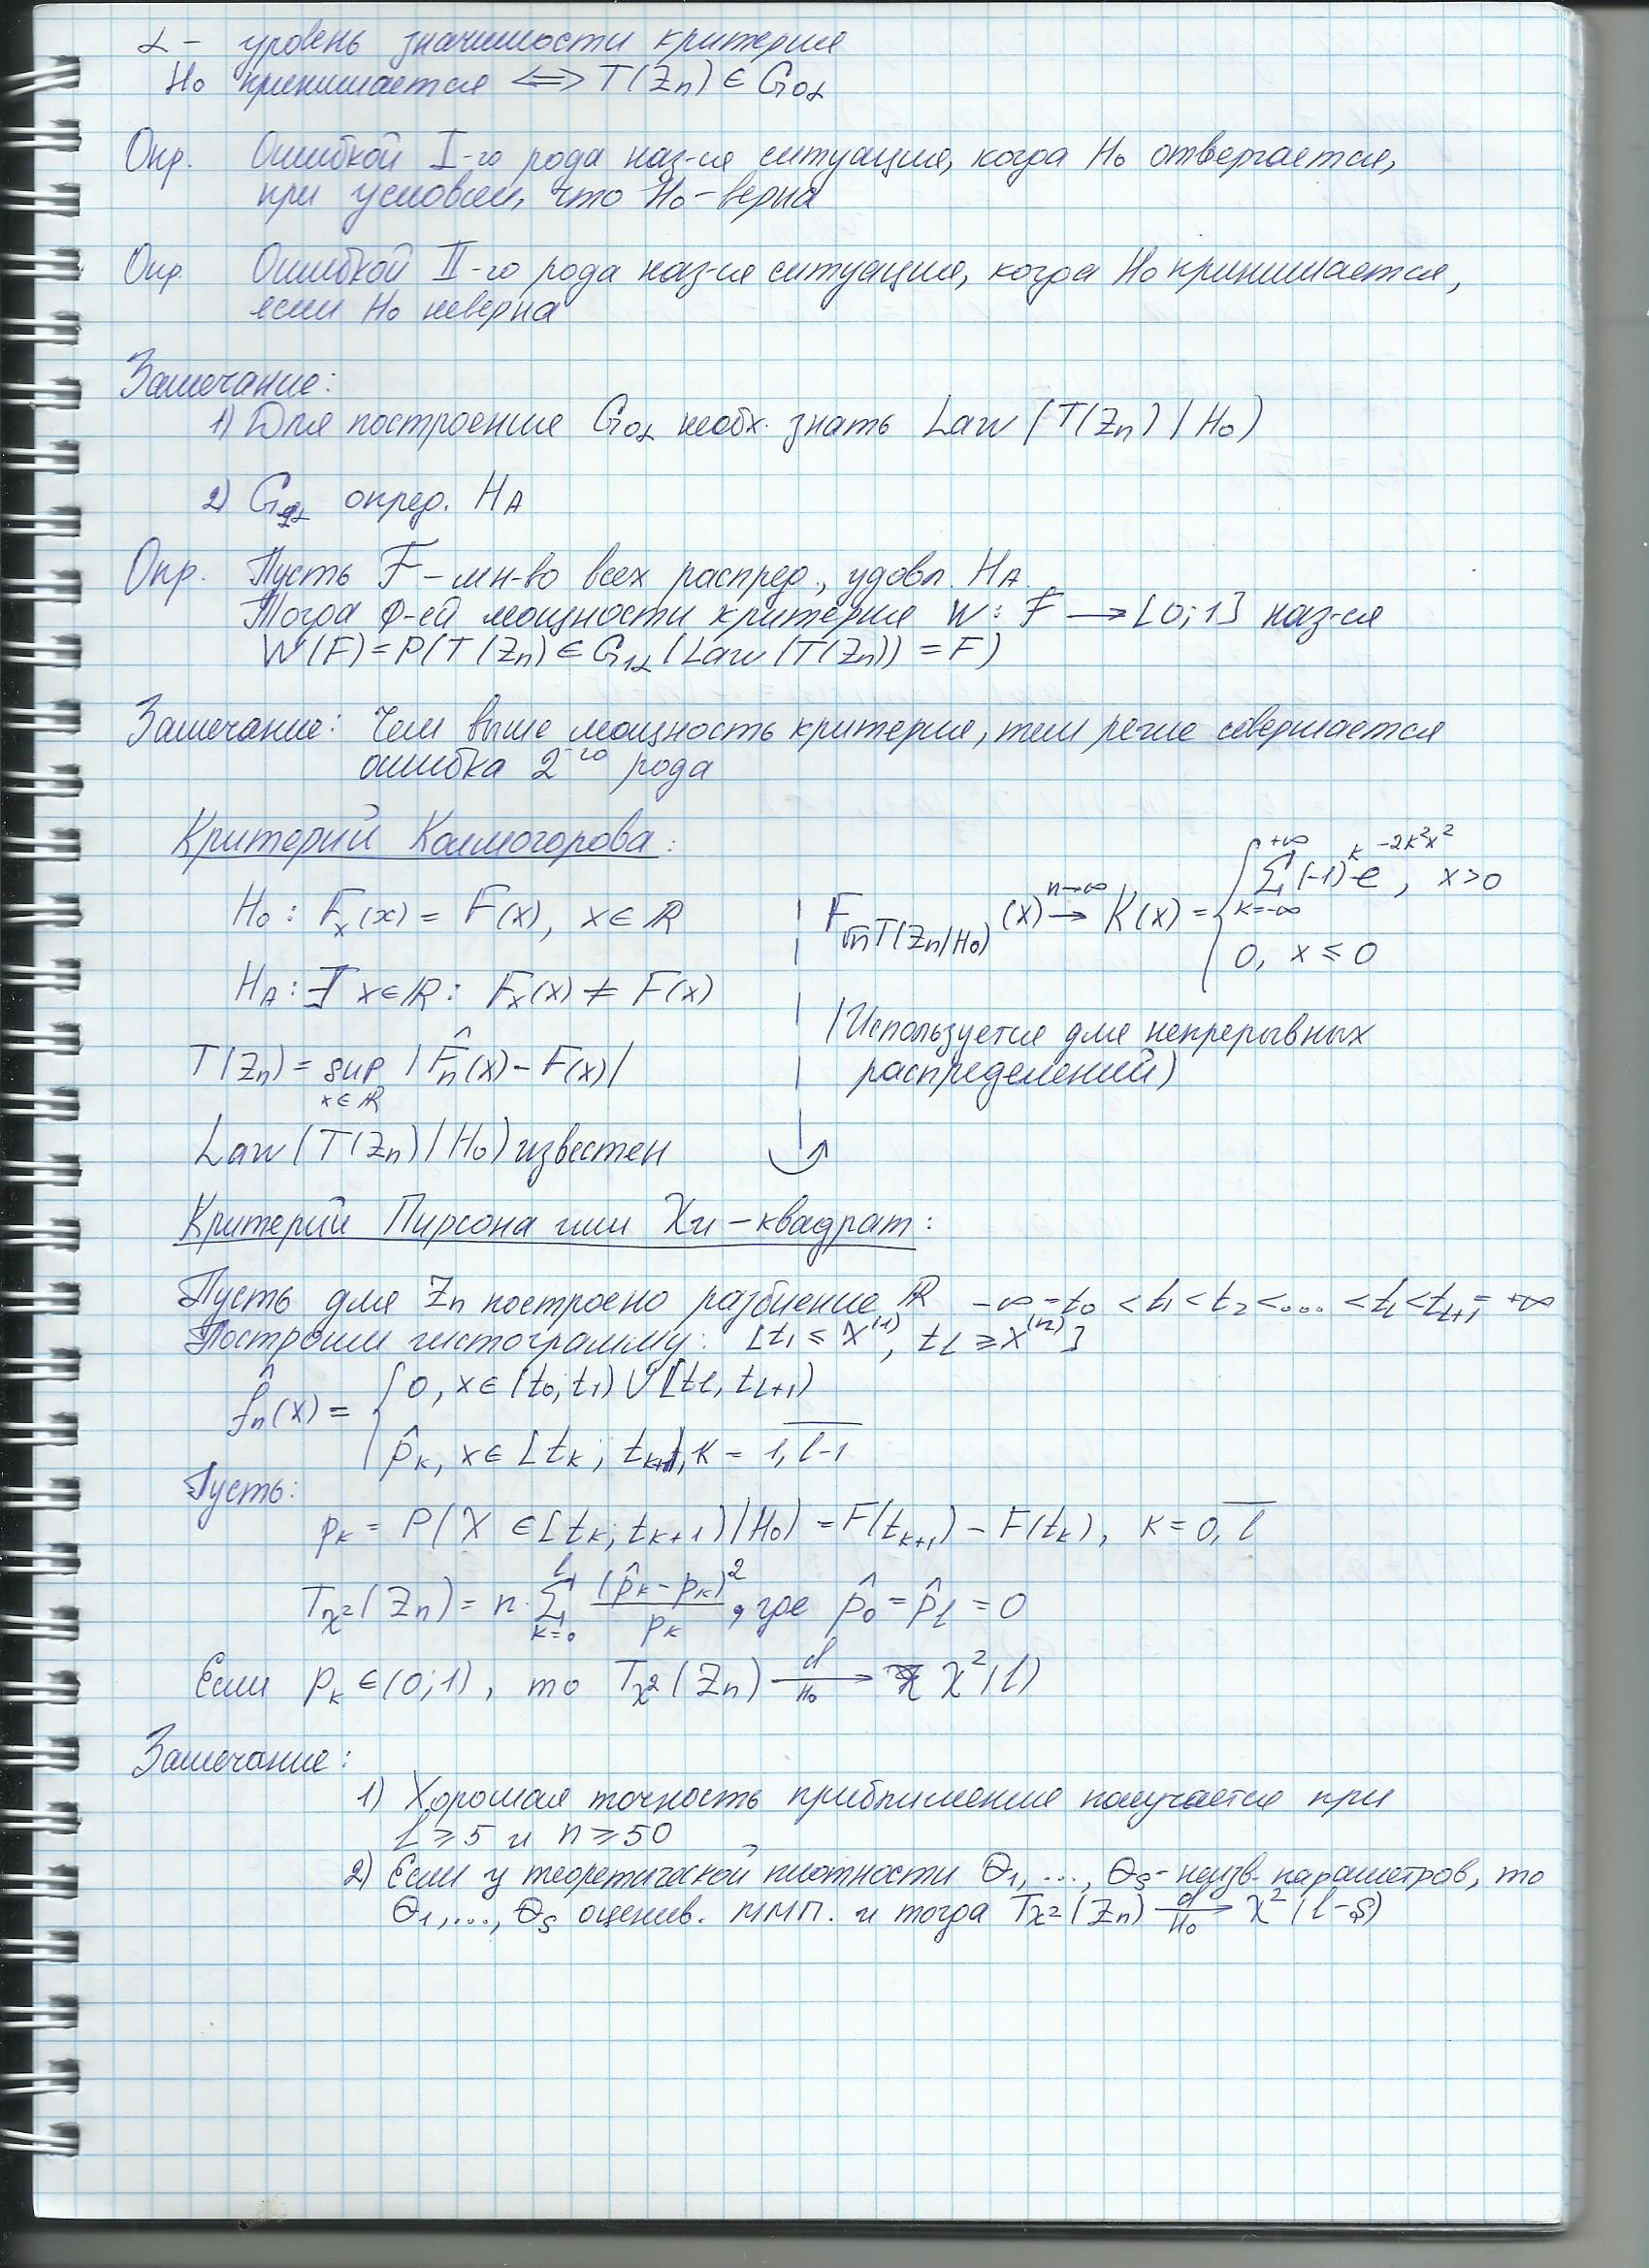 α - уровень значимости критерия
H₀ принимается ⟺ T(Zₙ) ∈ G₀α
Опр. Ошибкой I-го рода наз-ся ситуация, когда H₀ отвергается,
при условии, что H₀ - верна
Опр. Ошибкой II-го рода наз-ся ситуация, когда H₀ принимается,
если H₀ неверна
Замечание:
1) Для построения G₀α необх. знать Law(T(Zₙ) | H₀)
2) G₁α опред. H_A
Опр. Пусть F - мн-во всех распред., удовл. H_A.
Тогда ф-ей мощности критерия W: F → [0; 1] наз-ся
W(F) = P(T(Zₙ) ∈ G₁α | Law(T(Zₙ)) = F)
Замечание: Чем выше мощность критерия, тем реже совершается
ошибка 2-го рода
Критерий Колмогорова:
H₀: Fₓ(x) = F(x), x ∈ ℝ
H_A: ∃ x ∈ ℝ: Fₓ(x) ≠ F(x)
T(Zₙ) = sup_{x∈ℝ} |F̂ₙ(x) - F(x)|
Law(T(Zₙ) | H₀) известен
F_{√n T(Zₙ|H₀)}(x) →^{n→∞} K(x) = { Σ_{k=-∞}^{+∞} (-1)^k e^{-2k²x²}, x > 0
0, x ≤ 0
(Используется для непрерывных
распределений)
Критерий Пирсона или Хи-квадрат:
Пусть для Zₙ построено разбиение ℝ -∞ = t₀ < t₁ < t₂ < ... < t_l < t_{l+1} = +∞
Построим гистограмму: [t₁ ≤ X^{(1)}, t_l ≥ X^{(n)}]
f̂ₙ(x) = { 0, x ∈ (t₀; t₁) ∪ [t_l, t_{l+1})
p̂_k, x ∈ [t_k; t_{k+1}), k = \overline{1, l-1}
Пусть:
p_k = P(X ∈ [t_k; t_{k+1}) | H₀) = F(t_{k+1}) - F(t_k), k = \overline{0, l}
T_{χ²}(Zₙ) = n · Σ_{k=0}^{l} (p̂_k - p_k)² / p_k, где p̂₀ = p̂_l = 0
Если p_k ∈ (0; 1), то T_{χ²}(Zₙ) →^{d}_{H₀} χ²(l)
Замечание:
1) Хорошая точность приближения получается при
l ≥ 5 и n ≥ 50
2) Если у теоретической плотности θ₁, ..., θ_s - неизв. параметров, то
θ₁, ..., θ_s оценив. ММП. и тогда T_{χ²}(Zₙ) →^{d}_{H₀} χ²(l-s)